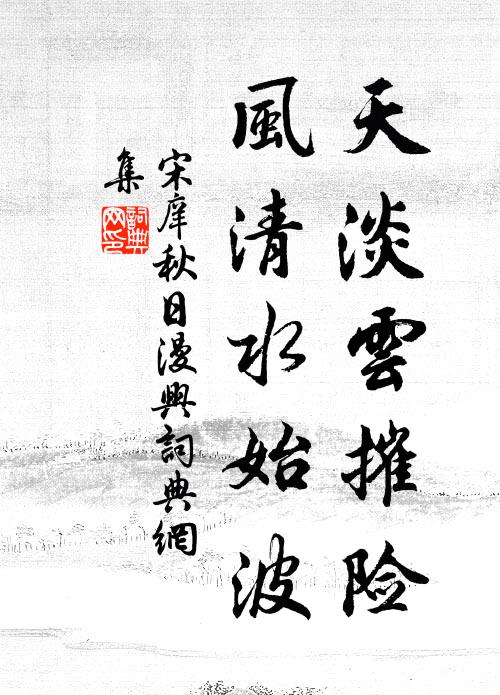 天淡雲摧险
風清水始波
宋庠秋日漫興詞典網
集
詞典
网印